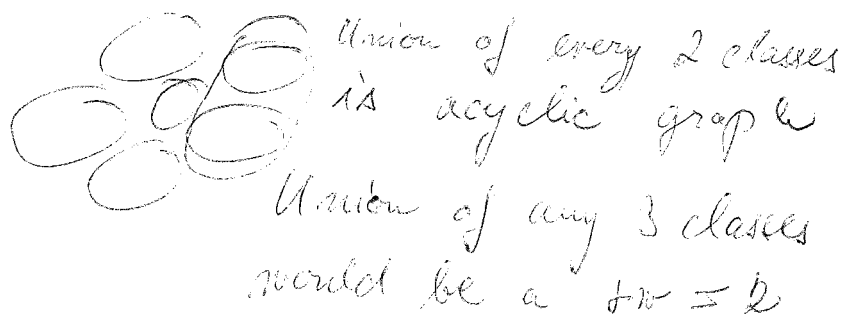 Union of every 2 classes
is acyclic graph
Union of any 3 classes
would be a tw = 2